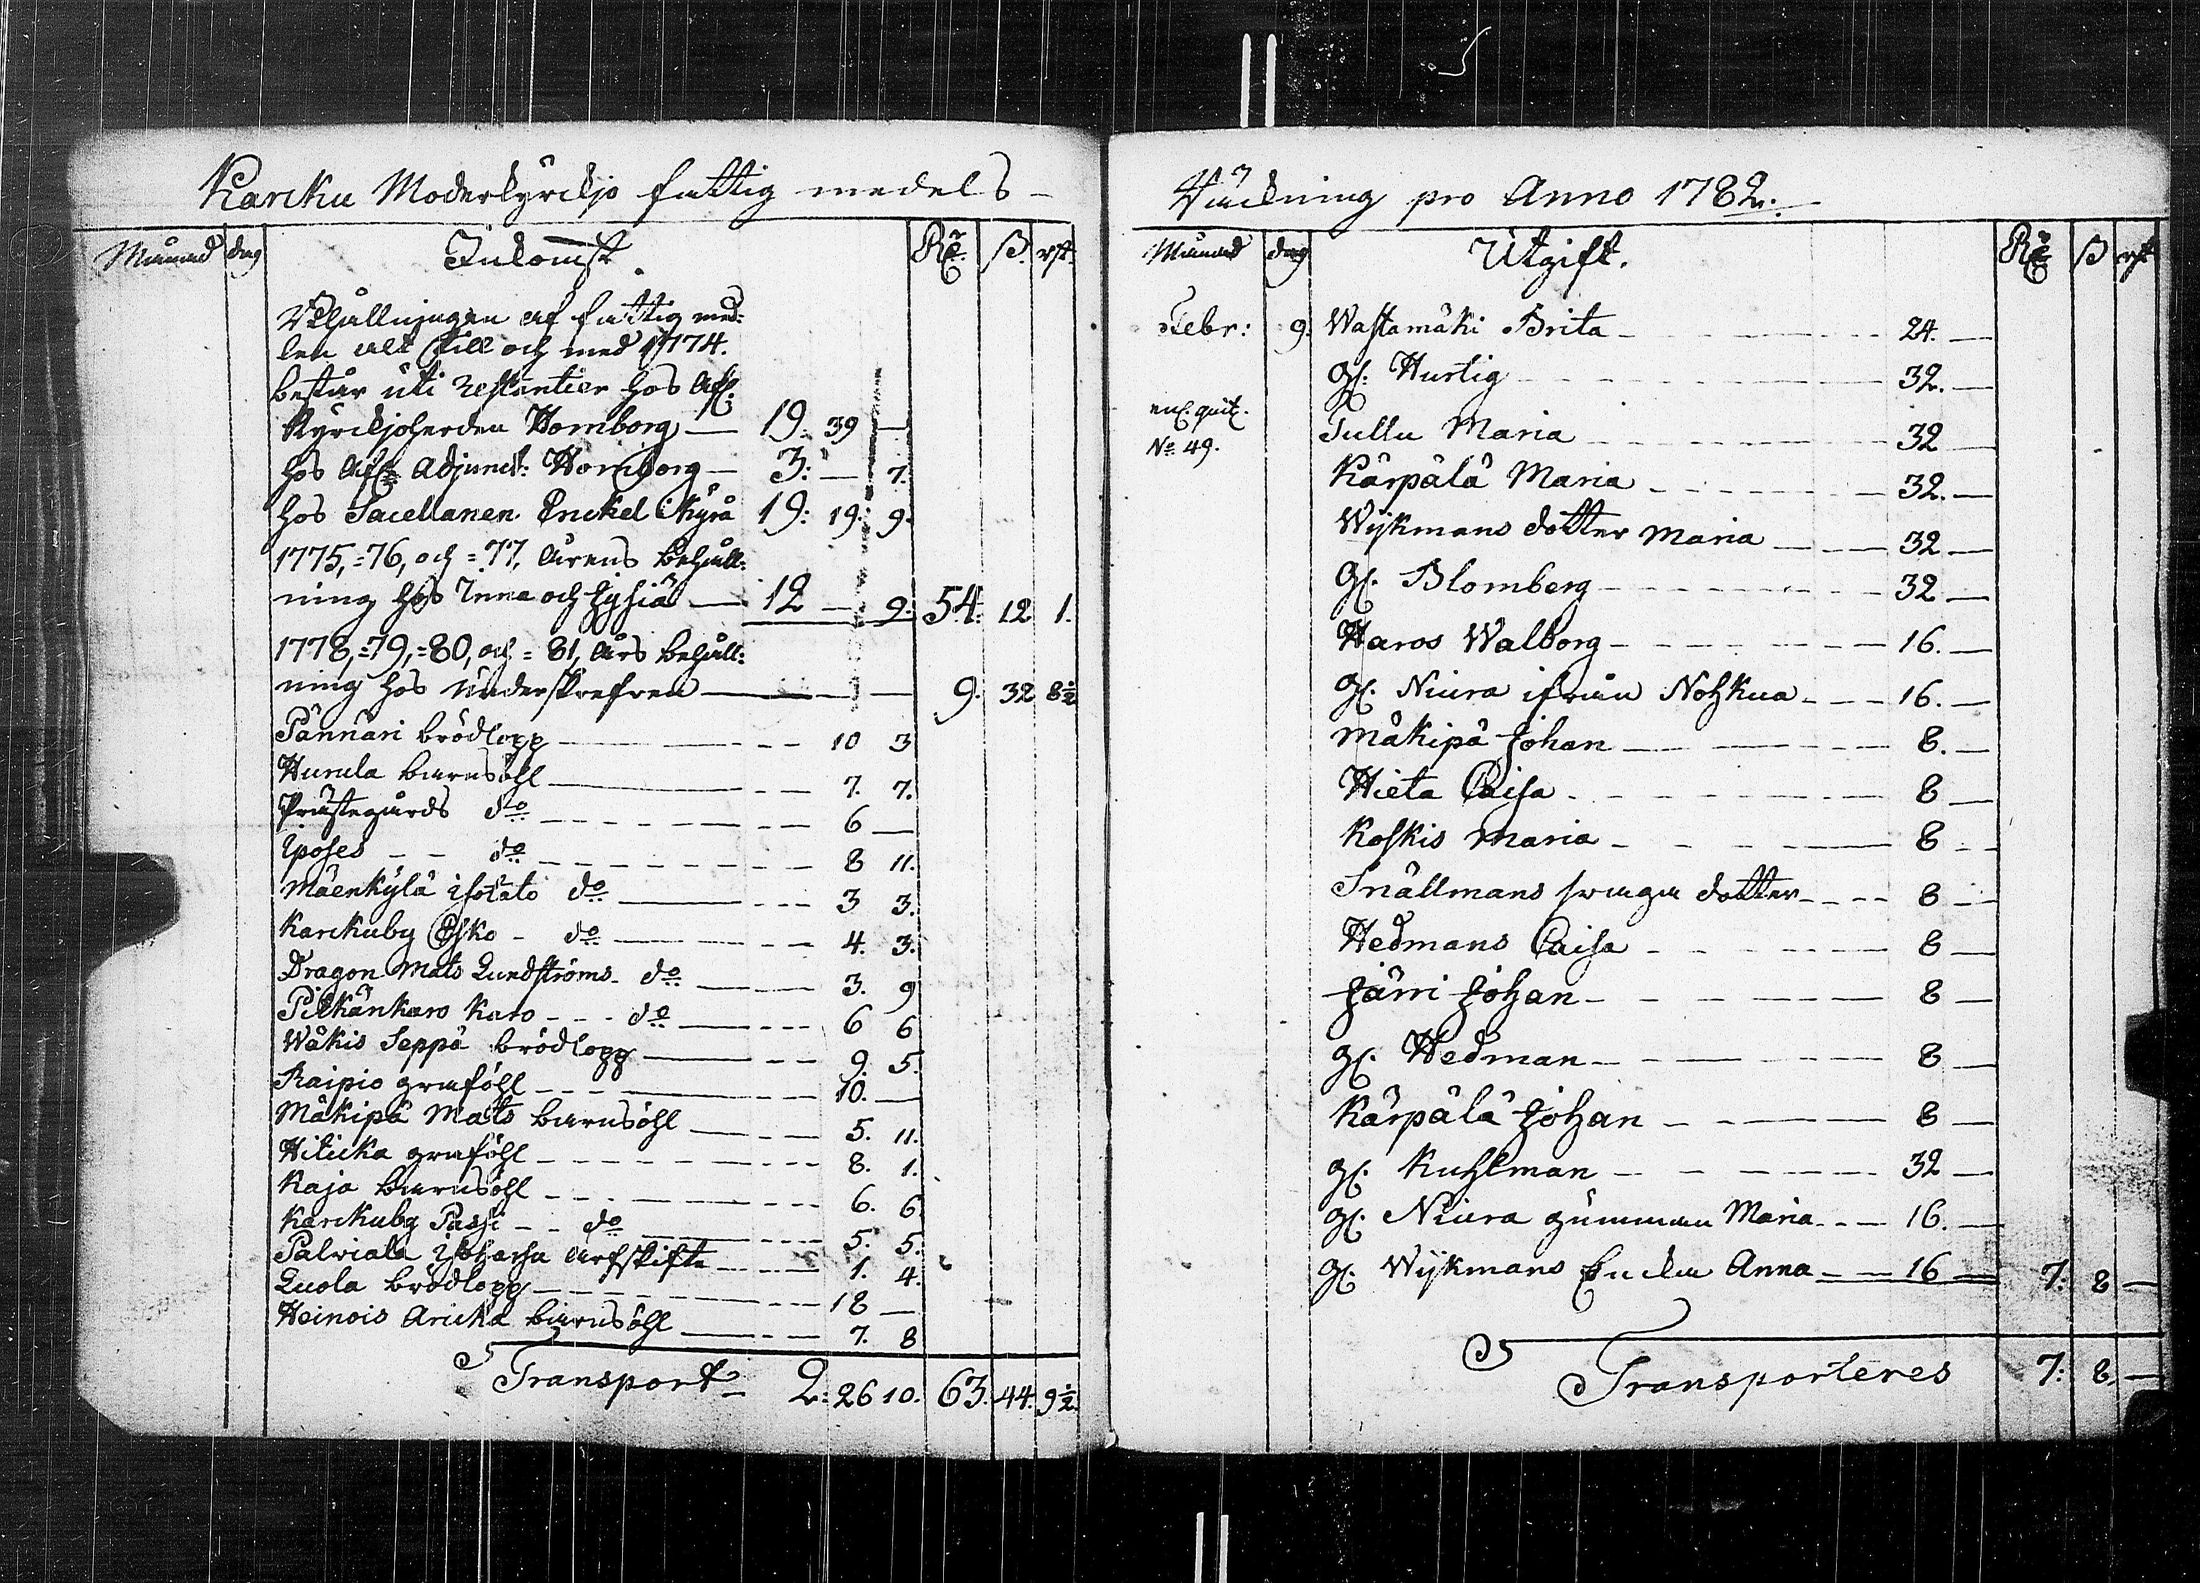 Karcku Moderkyrckjo fattig medels-
Månad dag Inkomst. Rd. ß. rst.
Behållningen af fattig med:
len alt till och med 1774.
består uti restantier hos Afl:
Kyrckjoherden Hornborg — 19: 39 —
hos Afl: Adjunct: Hornborg — 3: — 7.
hos Sacellanen Enckel i Kyrå 19: 19: 9.
1775, =76, och =77, Årens behåll:
ning hos Inna och Hyhiä — 12 — 9. 54: 12 1.
1778, =79, =80, och =81, Års behåll:
ning hos underskrefven — 9. 32 8½
Pännäri brödlopp — 10 3
Hurula barnsöhl — 7. 7.
Prästegårds do — 6 —
Iposes - - do — 8 11.
Mäenkylä Isotalo do — 3 3.
Karckuby Esko - do — 4. 3.
Dragon Mats Lundströms do — 3. 9
Pitkänkaro Karo - - - do — 6 6
Wäkis Seppä brödlopp — 9. 5.
Raipio graföhl — 10. —
Mäkipä Mats barnsöhl — 5. 11.
Hilucka graföhl — 8. 1.
Kaja barnsöhl — 6. 6
Karckuby Passi - - do — 5. 5.
Palviala arfskifte — 1. 4.
Luola brödlopp — 18 —
Heinois Aricka barnsöhl — 7. 8
Transport 2: 26 10. 63. 44. 9½.
Räckning pro Anno 1782.
Månad dag Utgift. Rd ß rst
Febr: 9. Wastamäki Brita — 24. —
gl: Hurtig — 32. —
enl. quit.
No 49.
Tullu Maria — 32
Kärpälä Maria — 32. —
Wijkmans dotter Maria — 32 —
Gl. Blomberg — 32 —
Haros Walborg — 16. —
Gl. Niura ifrån Nohkua — 16. —
Mäkipä Johan — 8. —
Hieta Caisa — 8 —
Koskis Maria — 8
Snällmans svaga dotter — 8 —
Hedmans Caisa — 8 —
Järri Johan — 8 —
gl. Hedman — 8 —
Kärpälä Johan — 8 —
gl. Kuhlman — 32 —
gl. Niura gumman Maria — 16. —
gl. Wijkmans Encka Anna — 16 — 7: 8 —
Transporteres 7: 8. —